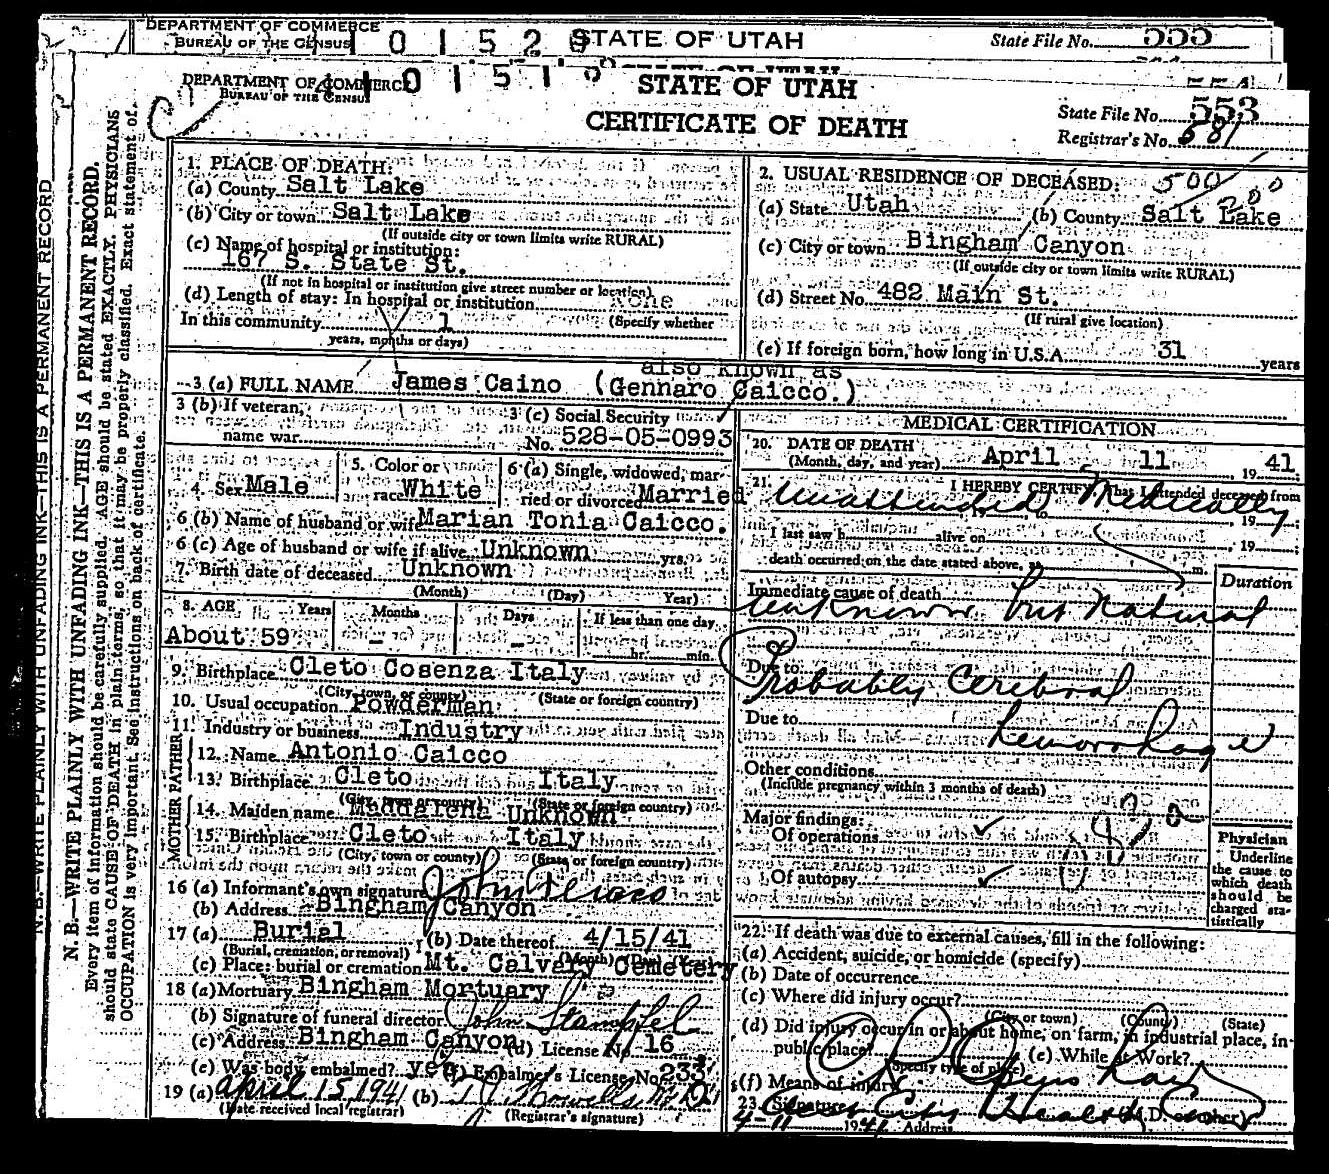 DEPARTMENT OF COMMERCE
BUREAU OF THE CENSUS
0 1 5 2 0
STATE OF UTAH
State File No. 555
DEPARTMENT OF COMMERCE
BUREAU OF THE CENSUS
0 1 5 1
STATE OF UTAH
CERTIFICATE OF DEATH
State File No. 553
Registrar's No. 581
N. B.—WRITE PLAINLY WITH UNFADING INK—THIS IS A PERMANENT RECORD
N. B.—WRITE PLAINLY WITH UNFADING INK—THIS IS A PERMANENT RECORD.
Every item of information should be carefully supplied. AGE should be stated EXACTLY. PHYSICIANS
should state CAUSE OF DEATH in plain terms, so that it may be properly classified. Exact statement of
OCCUPATION is very important. See instructions on back of certificate.
1. PLACE OF DEATH:
(a) County Salt Lake
(b) City or town Salt Lake
(If outside city or town limits write RURAL)
(c) Name of hospital or institution:
167 S. State St.
(If not in hospital or institution give street number or location)
(d) Length of stay: In hospital or institution none
In this community 1 (Specify whether
years, months or days)
2. USUAL RESIDENCE OF DECEASED: 500 200
(a) State Utah (b) County Salt Lake
(c) City or town Bingham Canyon
(If outside city or town limits write RURAL)
(d) Street No. 482 Main St.
(If rural give location)
(e) If foreign born, how long in U.S.A. 31 years
also known as
3 (a) FULL NAME James Caino (Gennaro Caicco.)
3 (b) If veteran, name war
3 (c) Social Security No. 528-05-0993
4. Sex Male
5. Color or race White
6 (a) Single, widowed, married or divorced Married
6 (b) Name of husband or wife Marian Tonia Caicco.
6 (c) Age of husband or wife if alive Unknown yrs.
7. Birth date of deceased Unknown
(Month) (Day) Year)
8. AGE Years Months Days If less than one day
About 59 - - hr. min.
9. Birthplace Cleto Cosenza Italy
(City, town, or county) (State or foreign country)
10. Usual occupation Powderman
11. Industry or business Industry
FATHER
12. Name Antonio Caicco
13. Birthplace Cleto Italy
(City, town or county) (State or foreign country)
MOTHER
14. Maiden name Maddalena Unknown
15. Birthplace Cleto Italy
(City, town or county) (State or foreign country)
16 (a) Informant's own signature John
(b) Address Bingham Canyon
17 (a) Burial (b) Date thereof 4/15/41
(Burial, cremation, or removal) (Month) (Day) (Year)
(c) Place: burial or cremation Mt. Calvary Cemetery
18 (a) Mortuary Bingham Mortuary
(b) Signature of funeral director John Stampfel
(c) Address Bingham Canyon (d) License No. 16
(e) Was body embalmed? yes (f) Embalmer's License No. 233
19 (a) April 15, 1941 (b)
(Date received local registrar) (Registrar's signature)
MEDICAL CERTIFICATION
20. DATE OF DEATH
(Month, day, and year) April 11 1941
21. I HEREBY CERTIFY, That I attended deceased from
Unattended Medically
to 19
I last saw h alive on 19
death occurred on the date stated above, at m.
Duration
Immediate cause of death
Unknown but natural
Due to
Probably Cerebral
Due to
hemorrhage
Other conditions
(Include pregnancy within 3 months of death)
Major findings:
Of operations
Of autopsy
Physician
Underline
the cause to
which death
should be
charged sta-
tistically
22. If death was due to external causes, fill in the following:
(a) Accident, suicide, or homicide (specify)
(b) Date of occurrence
(c) Where did injury occur?
(City or town) (County) (State)
(d) Did injury occur in or about home, on farm, in industrial place, in
public place? (e) While at Work?
(Specify type of place)
(f) Means of injury
23. Signature City Health (M.D. or other)
4-11 1941 Address